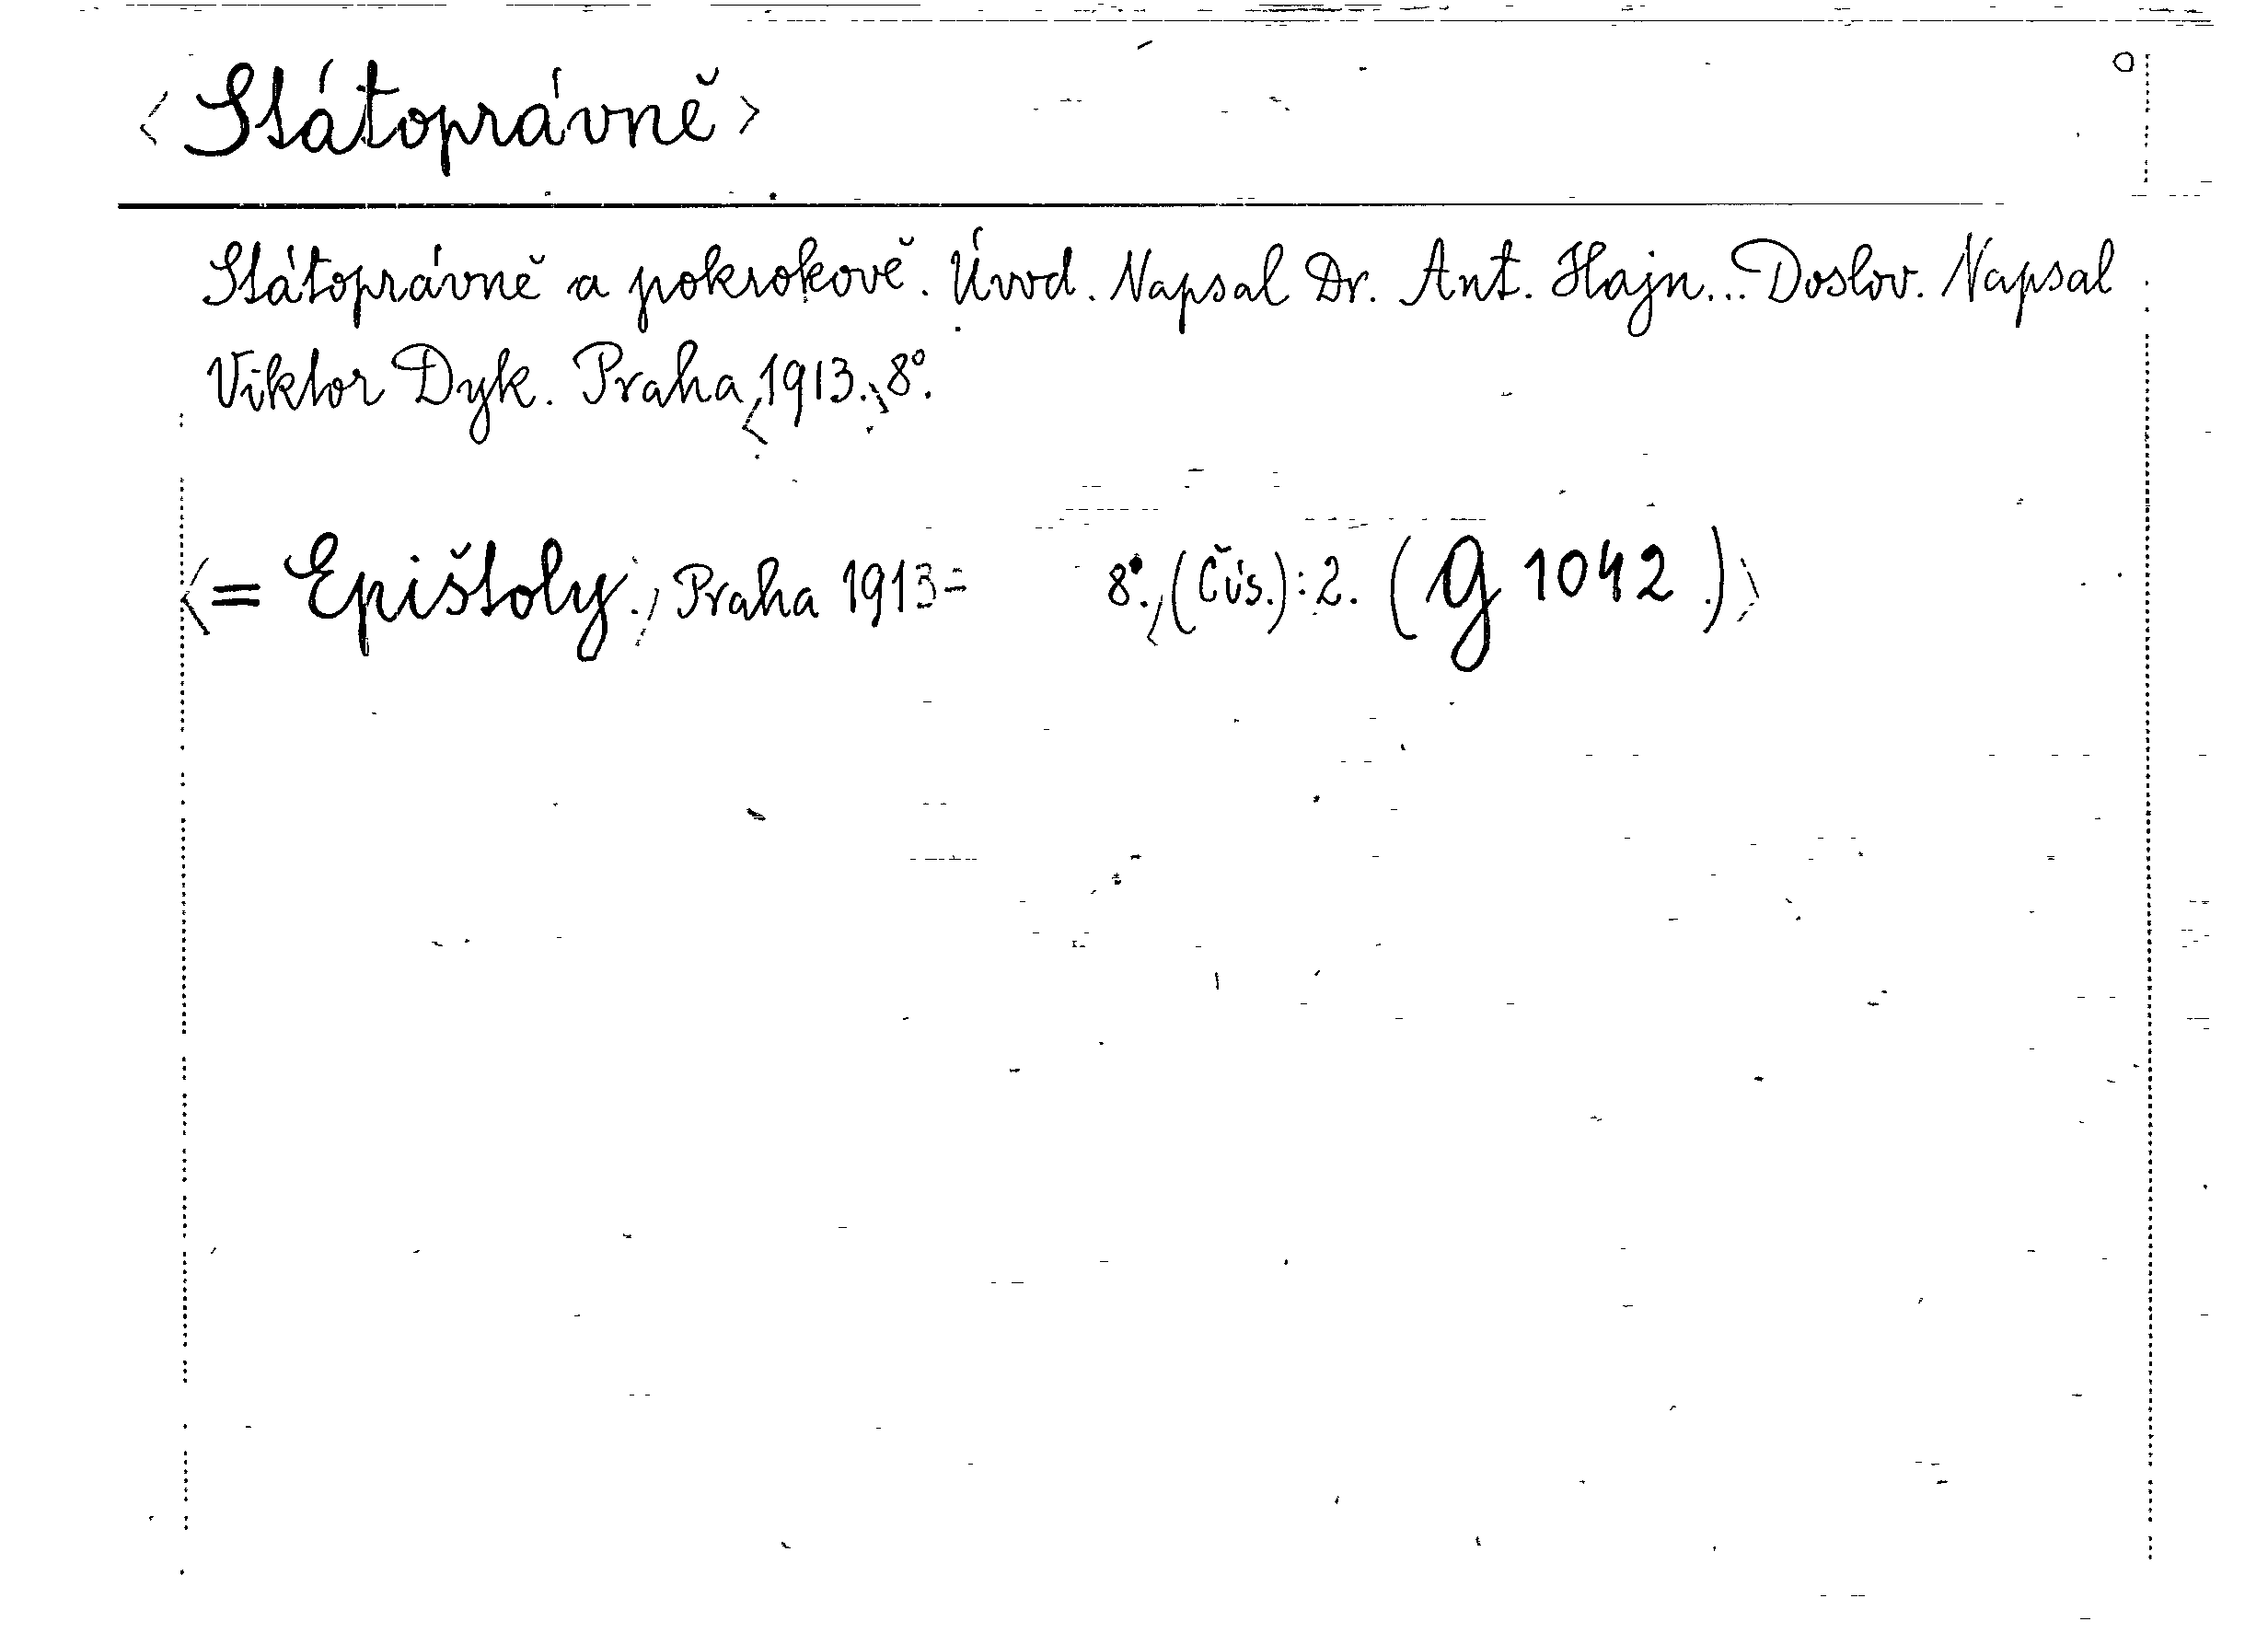 <Státoprávně>
Státoprávně a pokrokově. Úvod. Napsal Dr. Ant. Hajn... Doslov. Napsal
Viktor Dyk. Praha <1913.> 8°.
<= Epištoly.> Praha 1913- 8°. <(Čís.): 2. (G 1042.)>